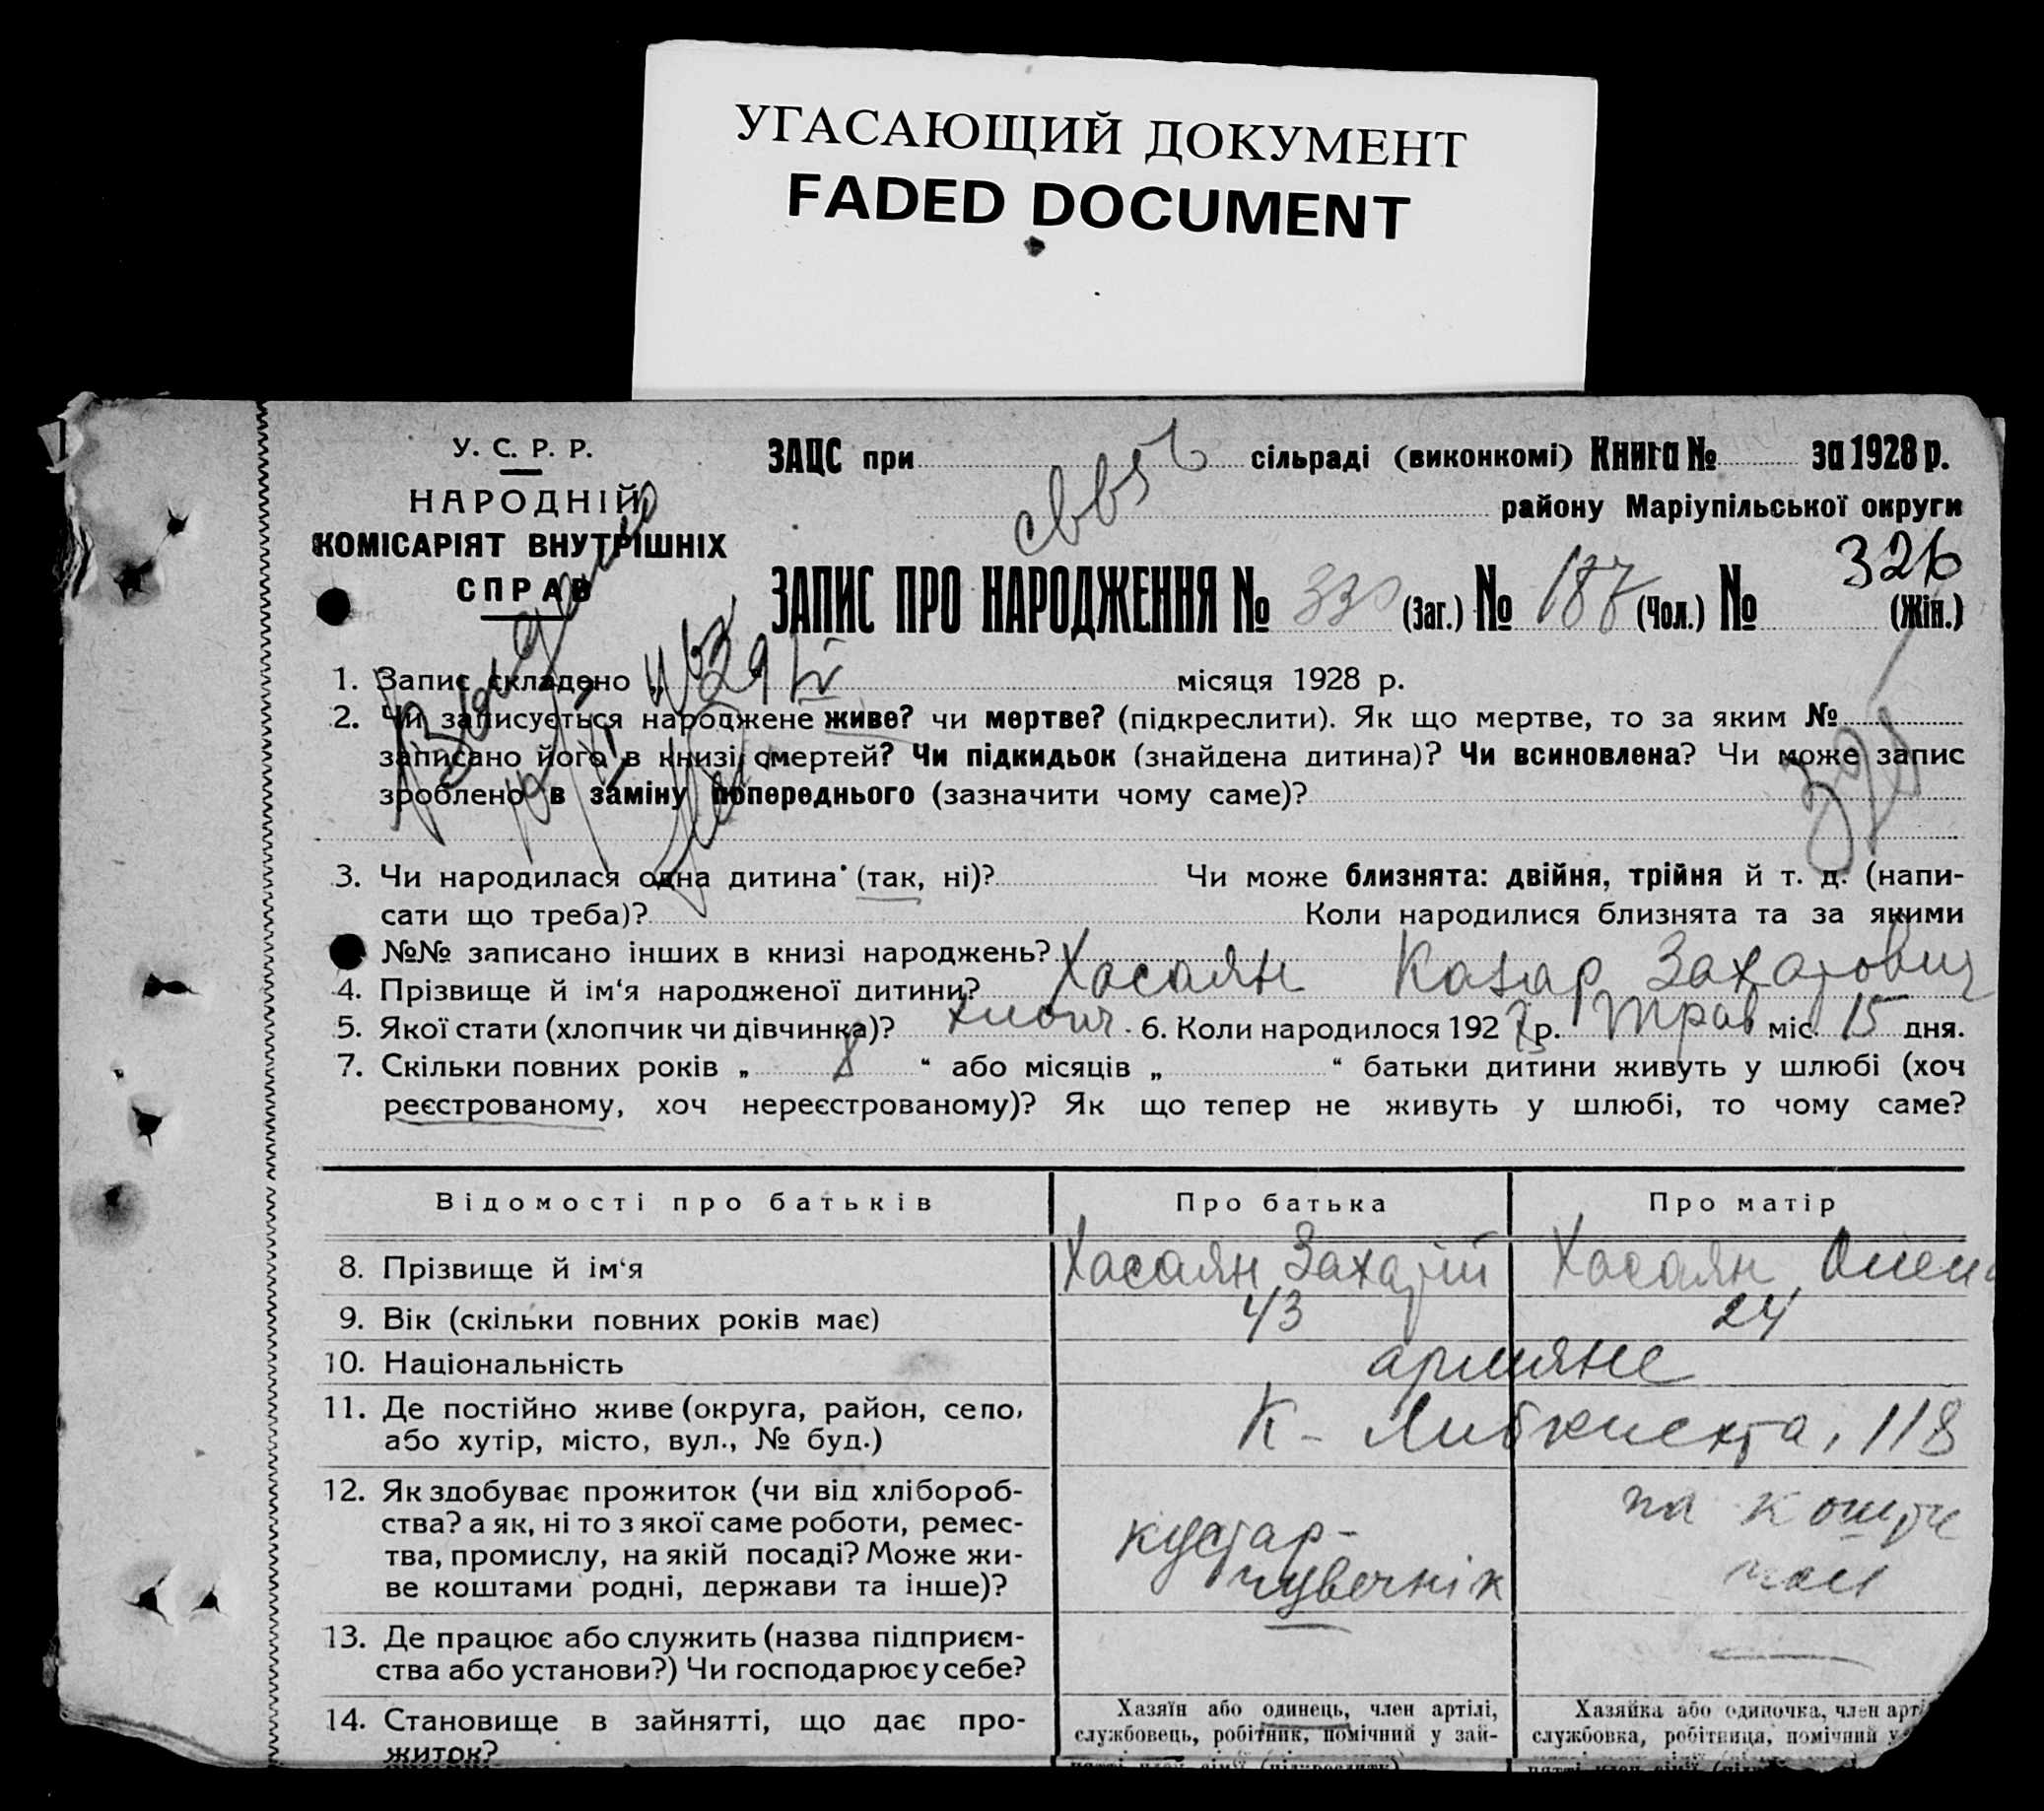 УГАСАЮЩИЙ ДОКУМЕНТ
FADED DOCUMENT
У. С. Р. Р.
НАРОДНІЙ
КОМІСАРІЯТ ВНУТРІШНІХ
СПРАВ
ЗАЦС при сільраді (виконкомі) Книга № за 1928 р.
району Маріупільської округи
326
ЗАПИС ПРО НАРОДЖЕННЯ № 330 (Заг.) № 187 (Чол.) № (Жін.)
1. Запис складено „ 29 IV місяця 1928 р.
2. Чи записується народжене живе? чи мертве? (підкреслити). Як що мертве, то за яким №
записано його в книзі смертей? Чи підкидьок (знайдена дитина)? Чи всиновлена? Чи може запис
зроблено в заміну попереднього (зазначити чому саме)?
3. Чи народилася одна дитина (так, ні)? Чи може близнята: двійня, трійня й т. д. (напи-
сати що треба)? Коли народилися близнята та за якими
№№ записано інших в книзі народжень?
4. Прізвище й ім‘я народженої дитини? Хасаян Казар Захарович
5. Якої стати (хлопчик чи дівчинка)? хлопч. 6. Коли народилося 192 р. трав міс. 15 дня.
7. Скільки повних років „ 8 “ або місяців „ “ батьки дитини живуть у шлюбі (хоч
реєстрованому, хоч нереєстрованому)? Як що тепер не живуть у шлюбі, то чому саме?
Відомості про батьків Про батька Про матір
8. Прізвище й ім‘я Хасаян Захарій Хасаян Олена
9. Вік (скільки повних років має) 43 24
10. Національність армяне
11. Де постійно живе (округа, район, село,
або хутір, місто, вул., № буд.) К - Либкнехта, 118
12. Як здобуває прожиток (чи від хлібороб-
ства? а як, ні то з якої саме роботи, ремес-
тва, промислу, на якій посаді? Може жи-
ве коштами родні, держави та інше)?
кустар-
на кошти
13. Де працює або служить (назва підприєм-
ства або установи?) Чи господарює у себе?
14. Становище в зайнятті, що дає про-
житок?
Хазяїн або одинець, член артілі,
службовець, робітник, помічний у зай-
Хазяйка або одиночка, член арт
службовка, робітниця, помічний у